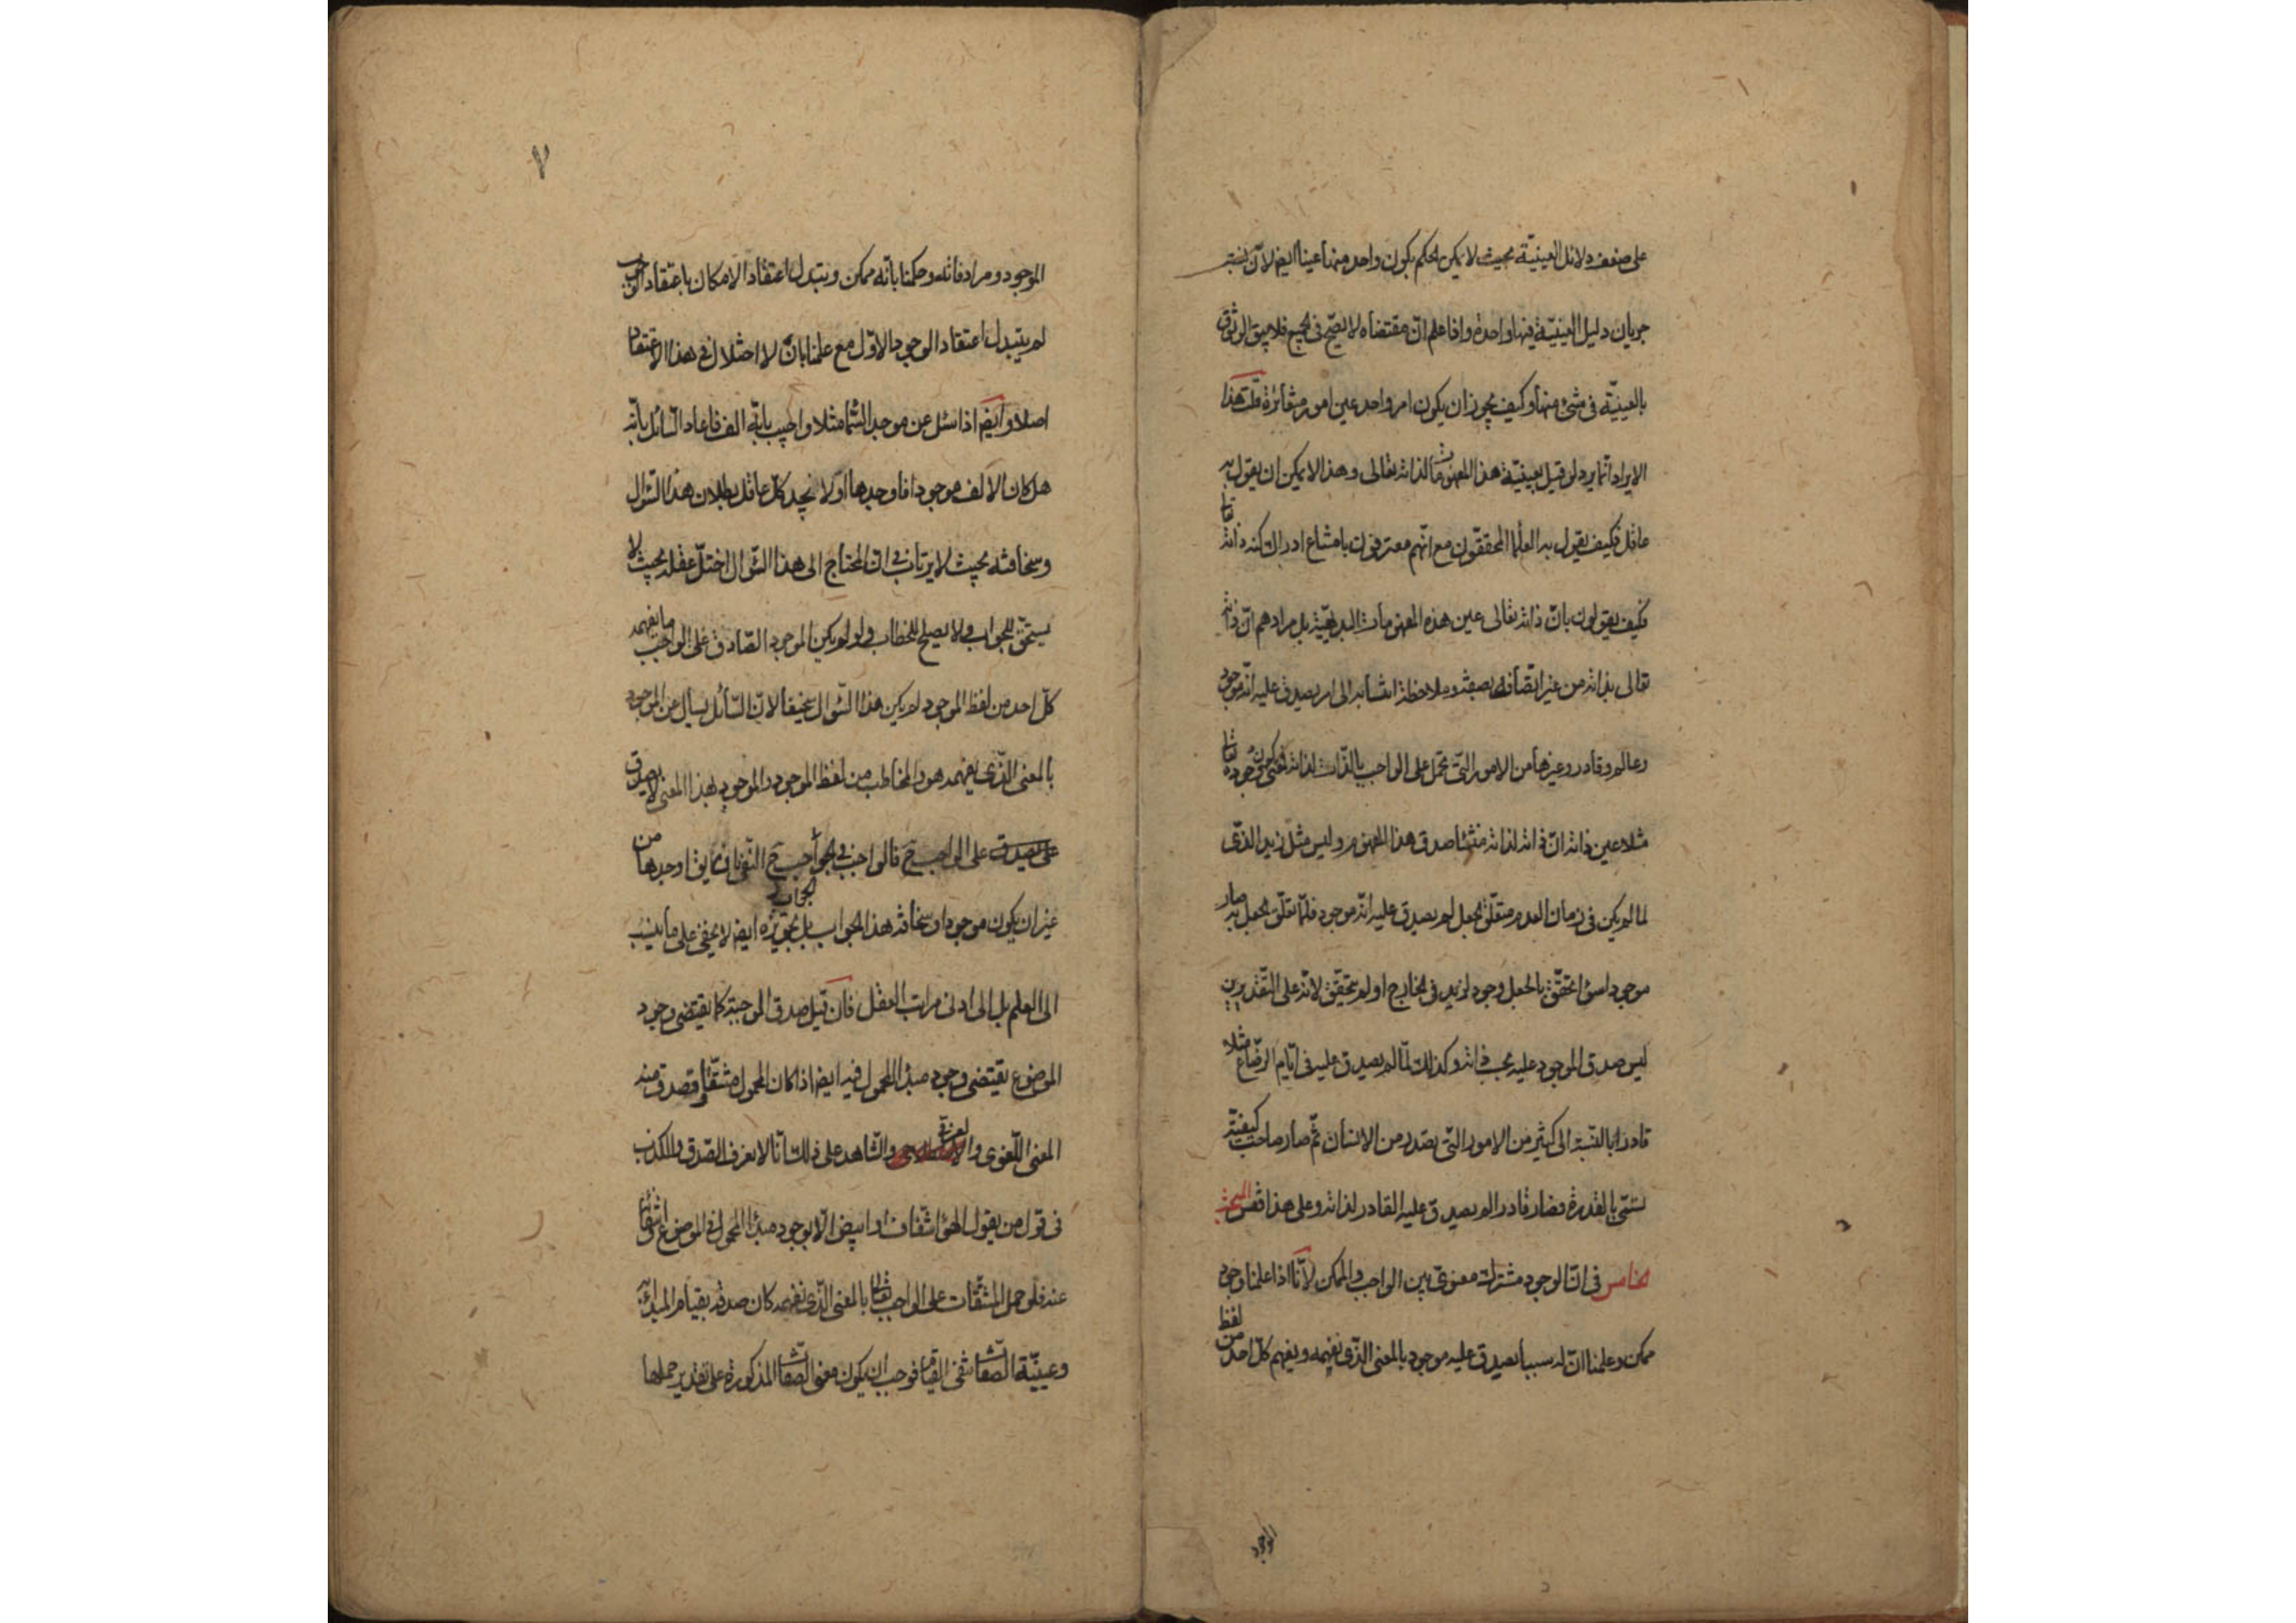 على ضعف دلائل العينية بحيث لا يمكن الحكم بكون واحد منها عينا ايضا لان نسبة
جريان دليل العينية فيها واحدة واذا علم ان مقتضاه لا يصح فى الجميع فلا يبقى الوثوق
بالعينية فى شئ منها وكيف يجوز ان يكون امر واحد عين امور متغائرة قلت هذا
الايراد انما يرد لو قيل بعينية هذا المفهومات لذاته تعالى وهذا لا يمكن ان يقول به
عاقل فكيف يقول به العلما المحققون مع انهم معترفون بامتناع ادراك كنه ذاته تعا
فكيف يقولون بان ذاته تعالى عين هذه المفهومات البديهية بل مرادهم ان ذاته
تعالى بذاته من غير اتصافه بصفة وملاحظة انتسابه الى امر يصدق عليه انه موجود
وعالم وقادر وغيرها من الامور التى تحمل على الواجب بالذات لذاته فمعنى كون وجوده تعا
مثلا عين ذاته ان ذاته لذاته منشأ صدق هذا المفهوم وليس مثل زيد الذى
لما لم يكن فى زمان العدم متعلق الجعل لم يصدق عليه انه موجود فلما تعلق الجعل به صار
موجودا سواء تحقق بالجعل وجود لزيد فى الخارج او لم يتحقق لانه على التقديرين
ليس صدق الموجود عليه بحسب ذاته وكذلك لما لم يصدق عليه فى ايام الرضاع مثلا
قادرا بالنسبة الى كثير من الامور التى يصدر من الانسان ثم صار صاحب كيفية
تسمى بالقدرة فصار قادرا لم يصدق عليه القادر لذاته وعلى هذا فقس المبحث
الخامس فى ان الوجود مشترك معنوى بين الواجب والممكن لانا اذا علمنا وجود
ممكن وعلمنا ان له سببا يصدق عليه موجود بالمعنى الذى نفهمه ويفهم كل احد من لفظ
الموجود
٧
الموجود ومرادفاته وحكمنا بانه ممكن ويتبدل اعتقاد الامكان باعتقاد الوجوب
لم يتبدل اعتقاد الوجود الاول مع علمنا بان لا اختلال فى هذا الاعتقاد
اصلا وايضا اذا سئل عن موجد السما مثلا واجيب بانه الف فاعاد السائل بانه
هل كان الالف موجودا فاوجدها او لا نجد كل عاقل بطلان هذا السؤال
وسخافته بحيث لا يرتاب فى ان المحتاج الى هذا السؤال اختل عقله بحيث لا
يستحق للجواب ولا يصلح للخطاب ولو لم يكن الموجود الصادق على الواجب ما يفهمه
كل احد من لفظ الموجود لم يكن هذا السؤال سخيفا لان السائل يسأل عن الموجود
بالمعنى الذى يفهمه هو والمخاطب من لفظ الموجود والموجود بهذا المعنى لا يصدق
على الواجب ح فالواجب فى الجواب ح النفى بان يقا اوجدها من
غير ان يكون موجودا وسخافة هذا الجواب بل تجويزه ايضا لا يخفى على ما ينسب
الى العلم بل الى ادنى مراتب العقل فان قيل صدق الموجبة كما يقتضى وجود
الموضوع يقتضى وجود مبدا المحمول فيه ايضا اذا كان المحمول مشتقا وقصد منه
المعنى اللغوى والعرفى والشاهد على ذلك انا لا نعرف الصدق والكذب
فى قول من يقول الهواء شفاف او ابيض الا بوجود مبدا المحمول فى الموضوع وانتفائه
عنه فلو حمل المشتقات على الواجب تعالى بالمعنى الذى نفهمه كان صدقه بقيام المبدأ به
وعينية الصفات تنفى القيام فوجب ان يكون معنى الصفات المذكورة على تقدير حملها